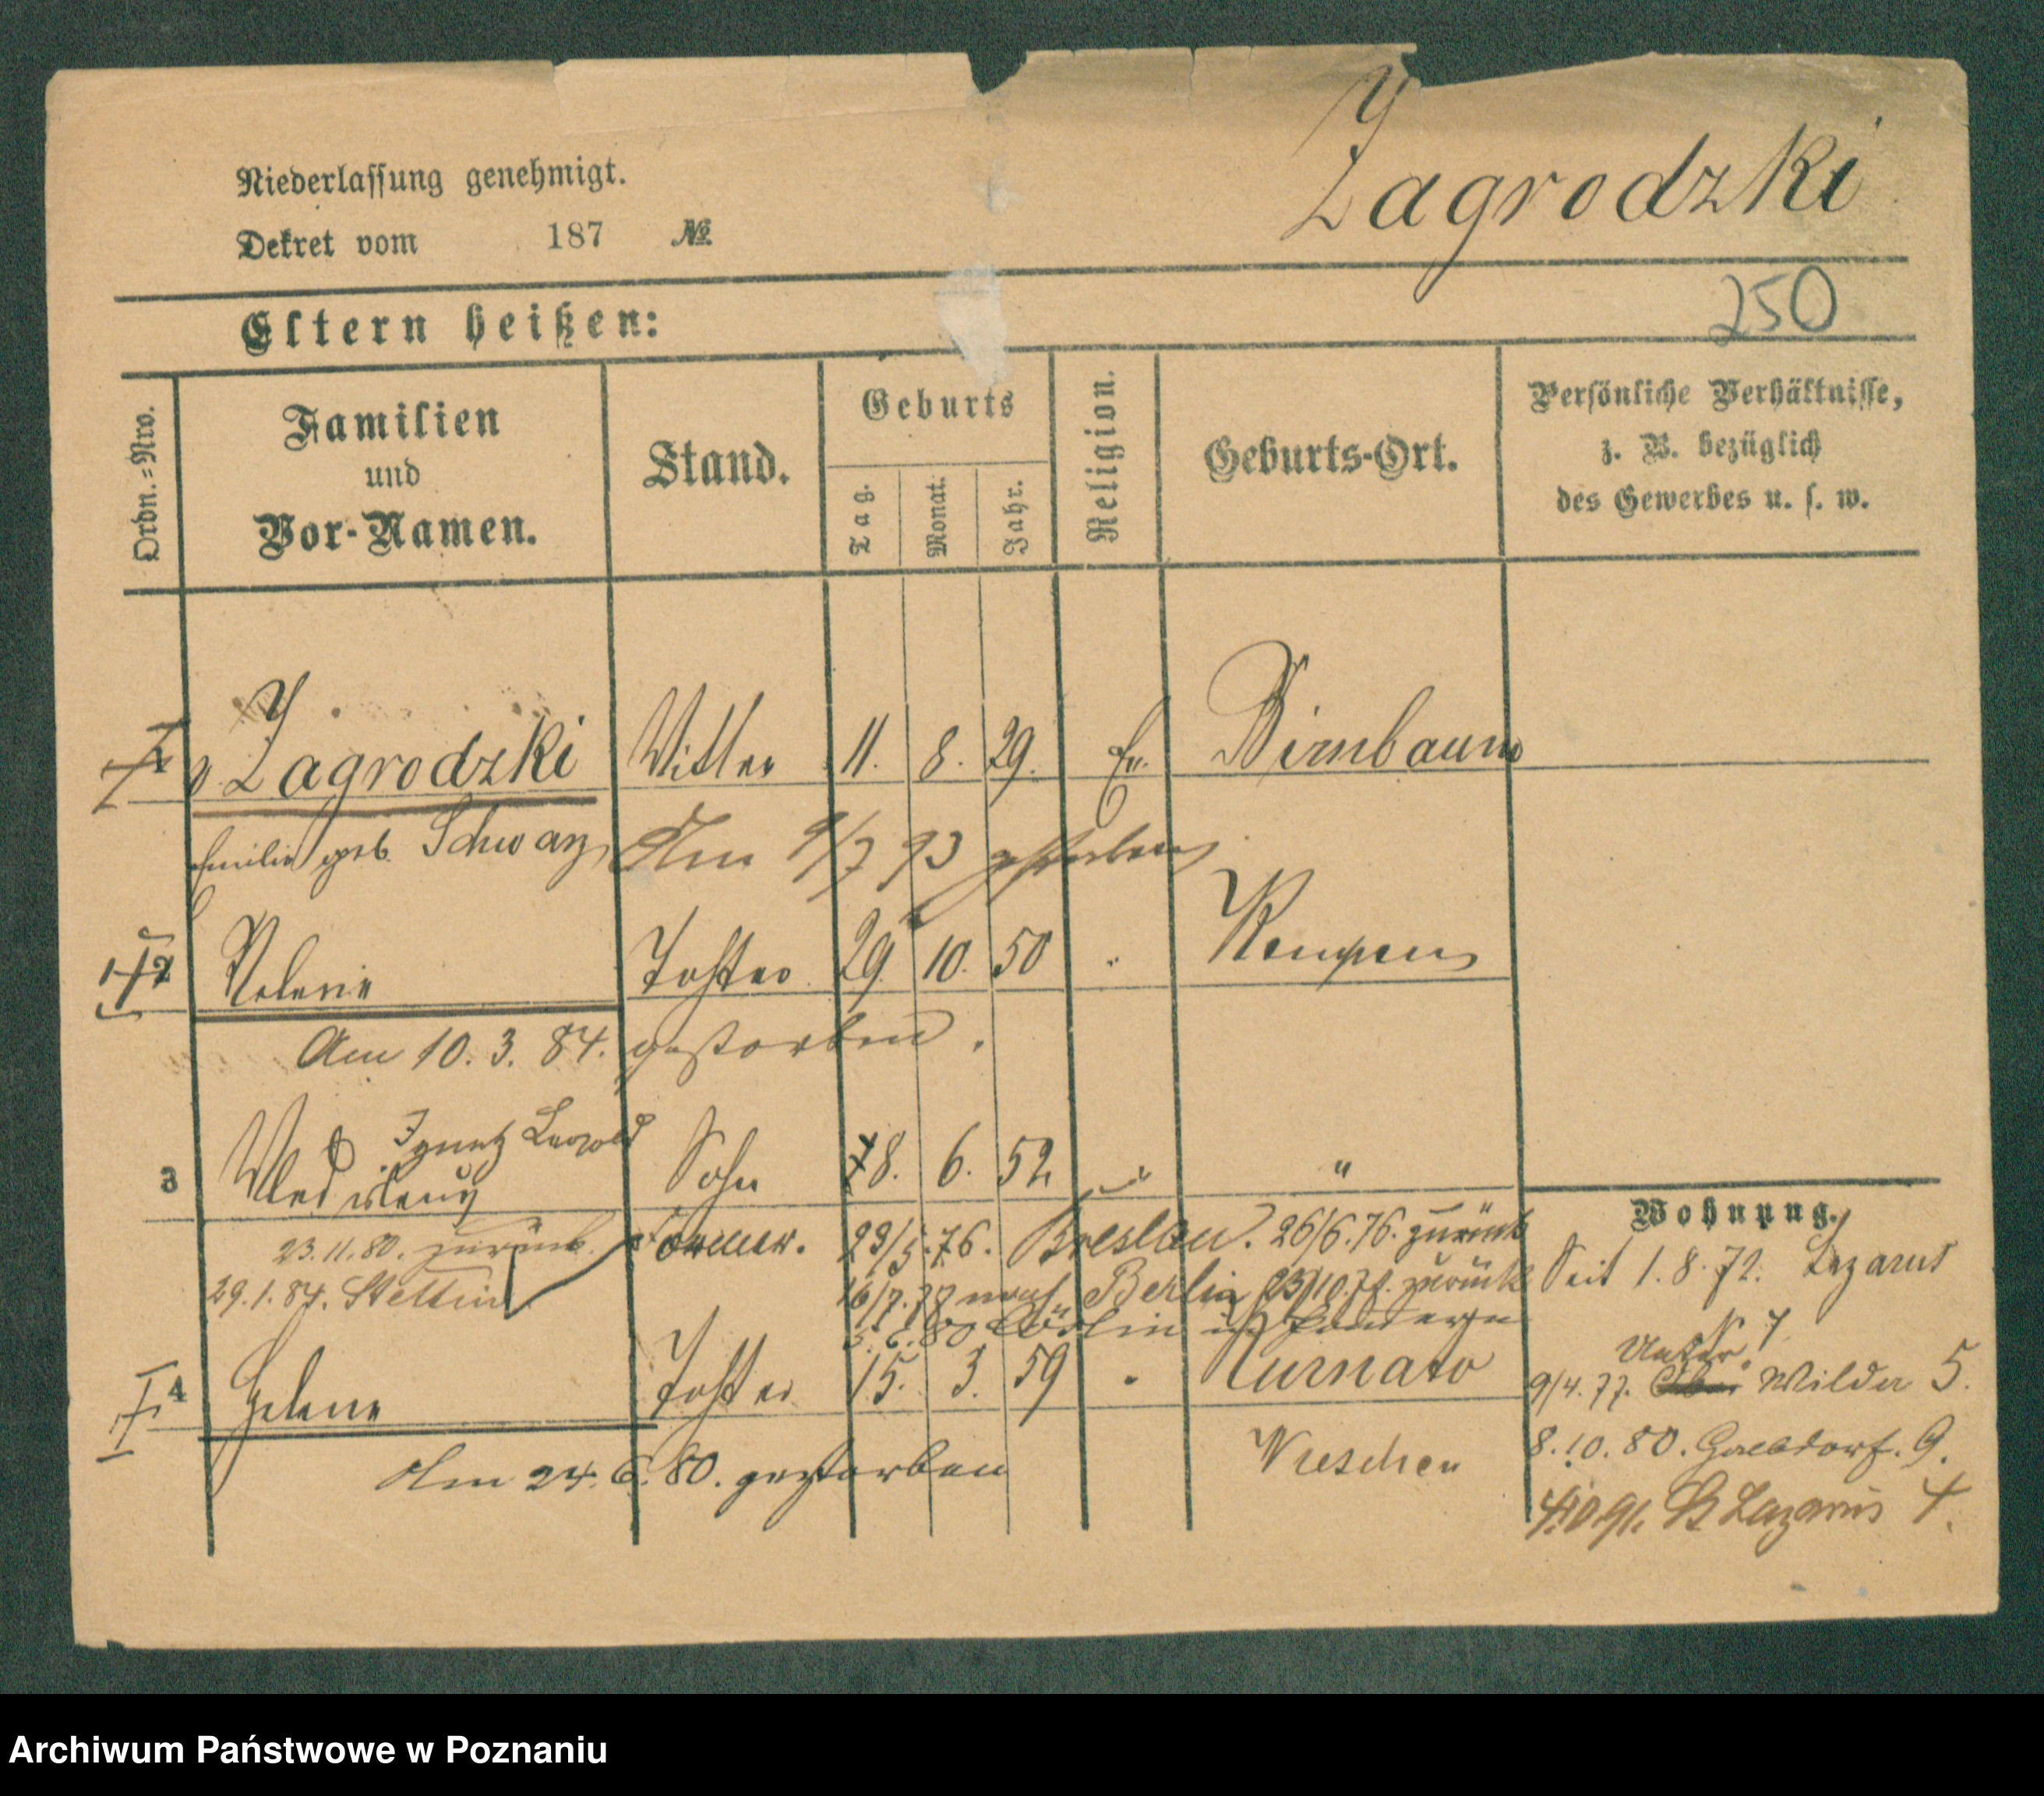 Zagrodzki
Niederlassung genehmigt.
Dekret vom 187 №
250
Eltern heißen:
Ordn.=Nro.
Familien
und
Vor-Namen.
Stand.
Geburts
Tag.
Monat.
Jahr.
Religion.
Geburts-Ort.
Persönliche Verhältnisse,
z. B. bezüglich
des Gewerbes u. s. w.
v Zagrodzki Wittwe 11. 8. 29. Ev. Birnbaum
Emilie geb. Schwarz Am 9/7 93 gestorben
2 Valerie Tochter 29. 10. 50 " Kempen
Am 10. 3. 84. gestorben.
Ignatz Leopold
3 Wladislaus Sohn 8. 6. 52 " "
Wohnung.
23.11.80. zurück. Former. 23/5.76. Breslau. 26/6.76. zurück
Seit 1. 8. 72. Lazarus
29.1.84. Stettin 16/7.78 nach Berlin 23/10.78. zurück
№ 7
5. 6. 80 Cöslin in Pommern
Unter
4 Helene Tochter 15. 3. 59 " Kurnato
9/4. 77. Wilda 5.
Am 24. 6. 80. gestorben Wreschen
8.10.80. 9.
4.10 91. St Lazarus 4.
Archiwum Państwowe w Poznaniu